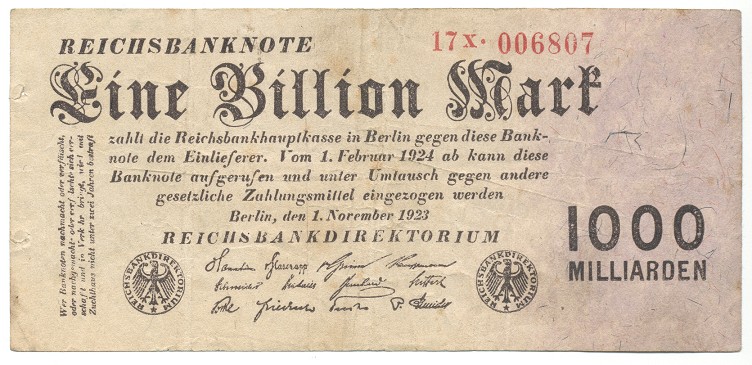 REICHSBANKNOTE
17X· 006807
Eine Billion Mark
zahlt die Reichsbankhauptkasse in Berlin gegen diese Bank-
note dem Einlieferer. Vom 1. Februar 1924 ab kann diese
Banknote aufgerufen und unter Umtausch gegen andere
gesetzliche Zahlungsmittel eingezogen werden
Berlin, den 1. November 1923
REICHSBANKDIREKTORIUM
1000
MILLIARDEN
Wer Banknoten nachmacht oder verfälscht,
oder nachgemachte oder verfälschte sich ver-
schafft und in Verkehr bringt, wird mit
Zuchthaus nicht unter zwei Jahren bestraft
REICHSBANKDIREKTORIUM
REICHSBANKDIREKTORIUM